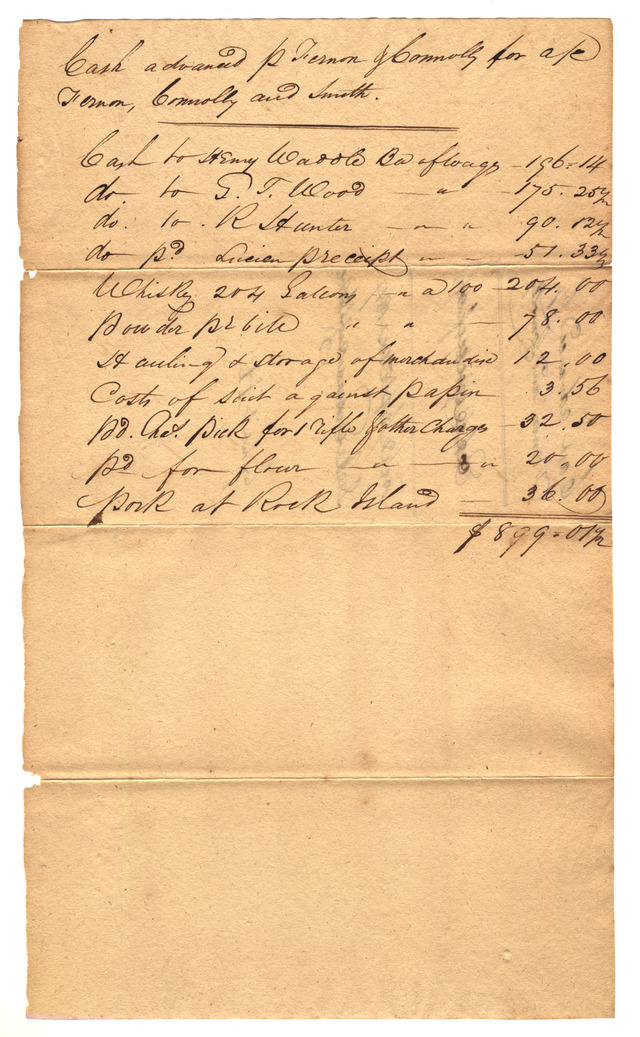 Cash advanced p Fernon & Connolly for a/c
Fernon, Connolly and Smith.
Cash to Henry Waddle Ba of wages - 196=14
do. to G. T. Wood — " — 175.25½
do. to. R Hunter — " — " 90.12½
do pd Lucien p receipt — " — 51.33½
Whiskey 204 Gallons — " a 100 - 204.00
Powder pr bill " " — 78.00
Hauling & storage of merchandise 12.00
Costs of suit against Papin 3.56
pd. Chas. Pick for 1 rifle & other Charges - 32.50
pd for flour — " — " 20.00
Pork at Rock Island — 36.00
$ 899=01½